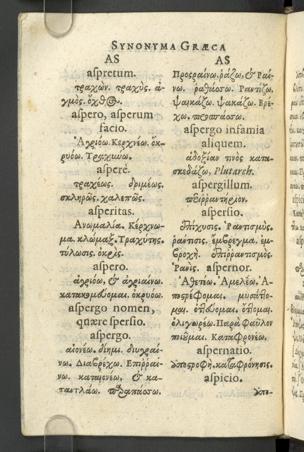 SYNONYMA GRÆCA
AS
aspretum.
τραχών. τραχύς.
aspero, asperum
facio.
Ἀγριόω. Κερχνέω.
Τραχύνω.
asperè.
τραχέως. δριμέως.
σκληρῶς. χαλεπῶς.
asperitas.
Ἀνωμαλία. Κέρχνω-
μα. κλῶμαξ. Τραχύτης.
τύλωσις. ὀκρίς.
aspero.
ἀγριόω, & ἀγριαίνω.
aspergo nomen,
quære spersio.
aspergo.
αἰονέω. δίημι. διυγραί-
νω. Διαβρέχω. Ἐπιρραί-
νω. καταιονέω, & κα-
ταντλάω.
AS
Προσραίνω. ῥάζω, & Ῥαί-
νω. Ῥαντίζω.
ψακάζω. ψεκάζω. Βρέ-
χω.
aspergo infamia
aliquem.
ἀδοξίαν τινὸς κατα-
σκεδάζω, Plutarch.
aspergillum.
περιῤῥαντήριον.
aspersio.
ἐπίχυσις. Ῥαντισμὸς.
ῥάντισις. ἔμβρεγμα. ἐμ-
βροχή. ἐπιρραντισμός.
Ῥανίς. aspernor.
Ἀθετέω. Ἀμελέω. Ἀ-
ποστρέφομαι.
ὀλιγωρέω. Παρὰ φαῦλον
ποιέομαι. Καταφρονέω.
aspernatio.
ὑπεροψία. καταφρόνησις.
aspicio.